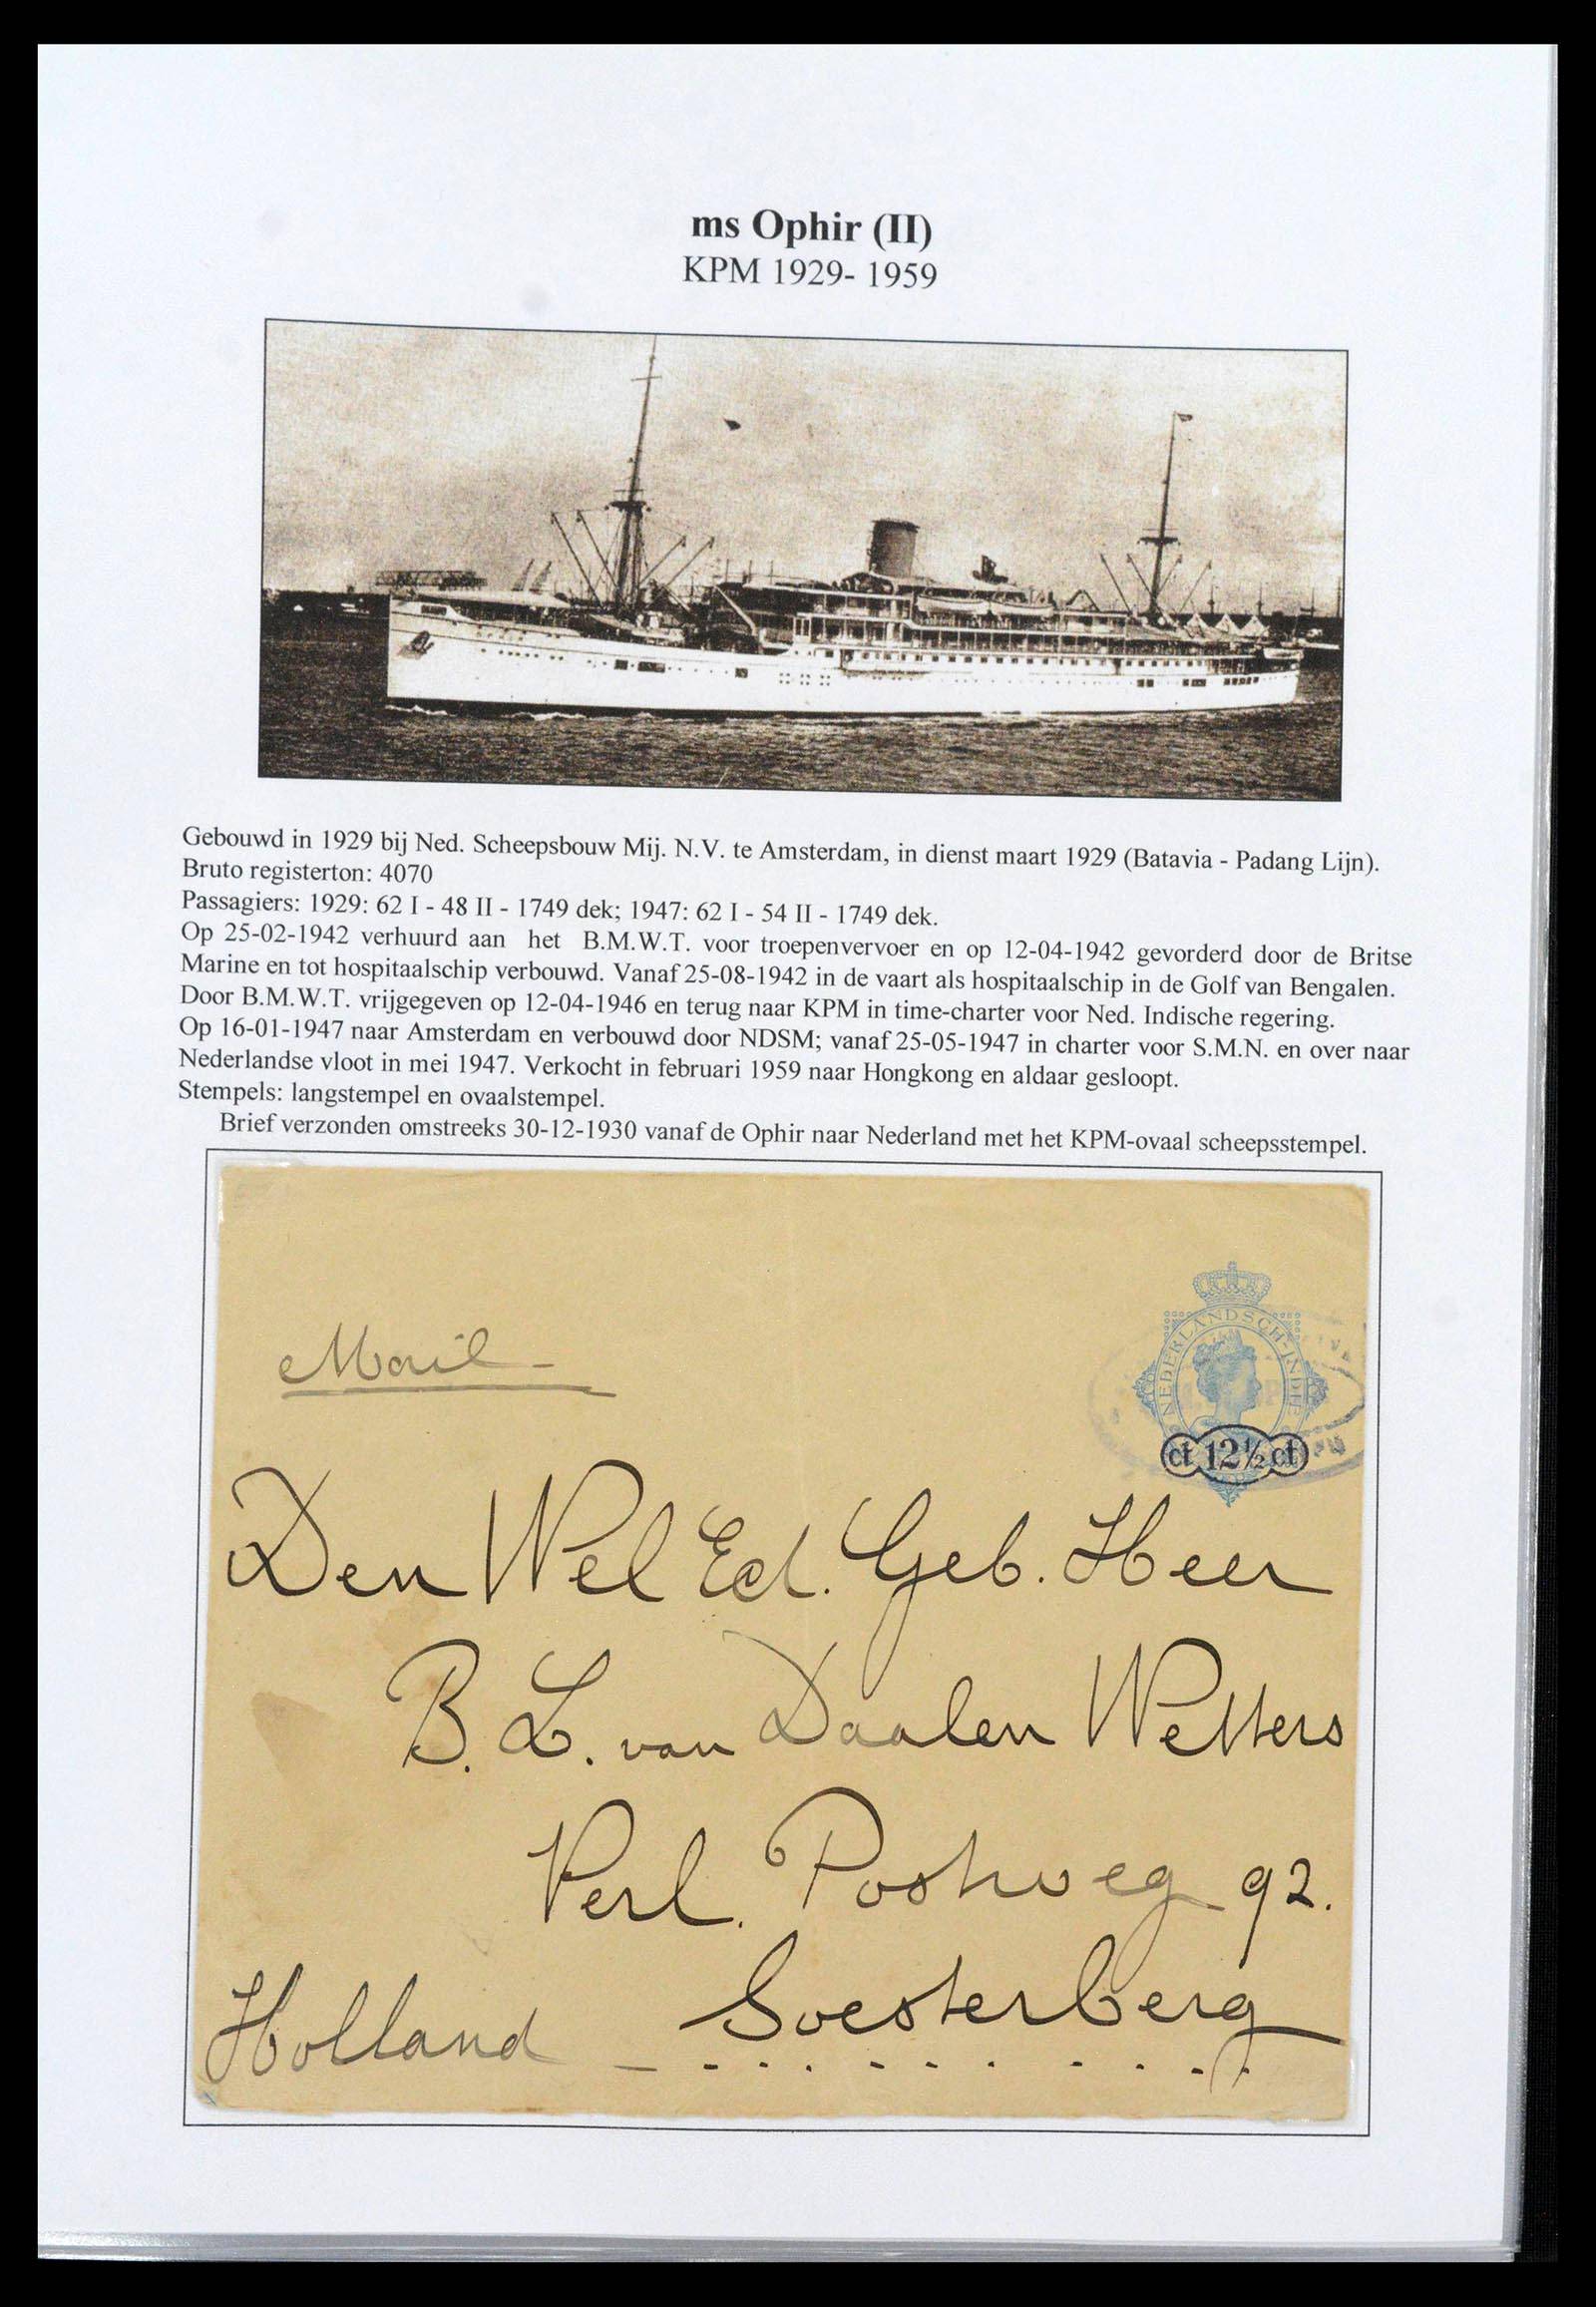 ms Ophir (II)
KPM 1929- 1959
Gebouwd in 1929 bij Ned. Scheepsbouw Mij. N.V. te Amsterdam, in dienst maart 1929 (Batavia - Padang Lijn).
Bruto registerton: 4070
Passagiers: 1929: 62 I - 48 II - 1749 dek; 1947: 62 I - 54 II - 1749 dek.
Op 25-02-1942 verhuurd aan het B.M.W.T. voor troepenvervoer en op 12-04-1942 gevorderd door de Britse
Marine en tot hospitaalschip verbouwd. Vanaf 25-08-1942 in de vaart als hospitaalschip in de Golf van Bengalen.
Door B.M.W.T. vrijgegeven op 12-04-1946 en terug naar KPM in time-charter voor Ned. Indische regering.
Op 16-01-1947 naar Amsterdam en verbouwd door NDSM; vanaf 25-05-1947 in charter voor S.M.N. en over naar
Nederlandse vloot in mei 1947. Verkocht in februari 1959 naar Hongkong en aldaar gesloopt.
Stempels: langstempel en ovaalstempel.
Brief verzonden omstreeks 30-12-1930 vanaf de Ophir naar Nederland met het KPM-ovaal scheepsstempel.
NEDERLANDSCH-INDIE
Mail -
ct 12½ ct
Den Wel Ed. Geb. Heer
B. L. van Daalen Wetters
Verl. Postweg 92.
Soesterberg
Holland